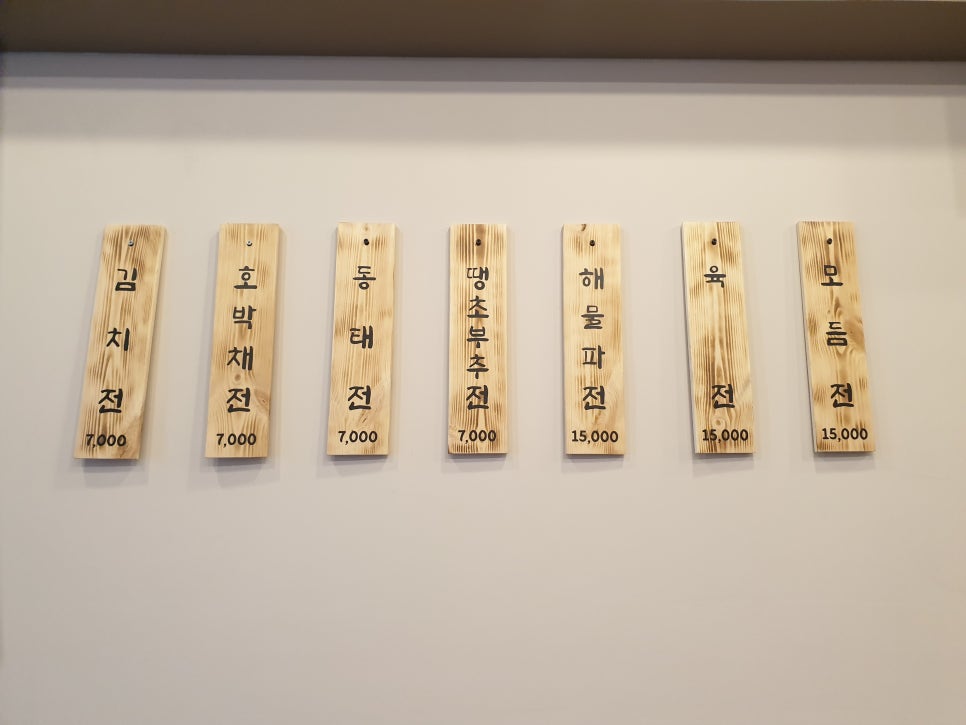 김치전
7,000
호박채전
7,000
동태전
7,000
땡초부추전
7,000
해물파전
15,000
육전
15,000
모듬전
15,000